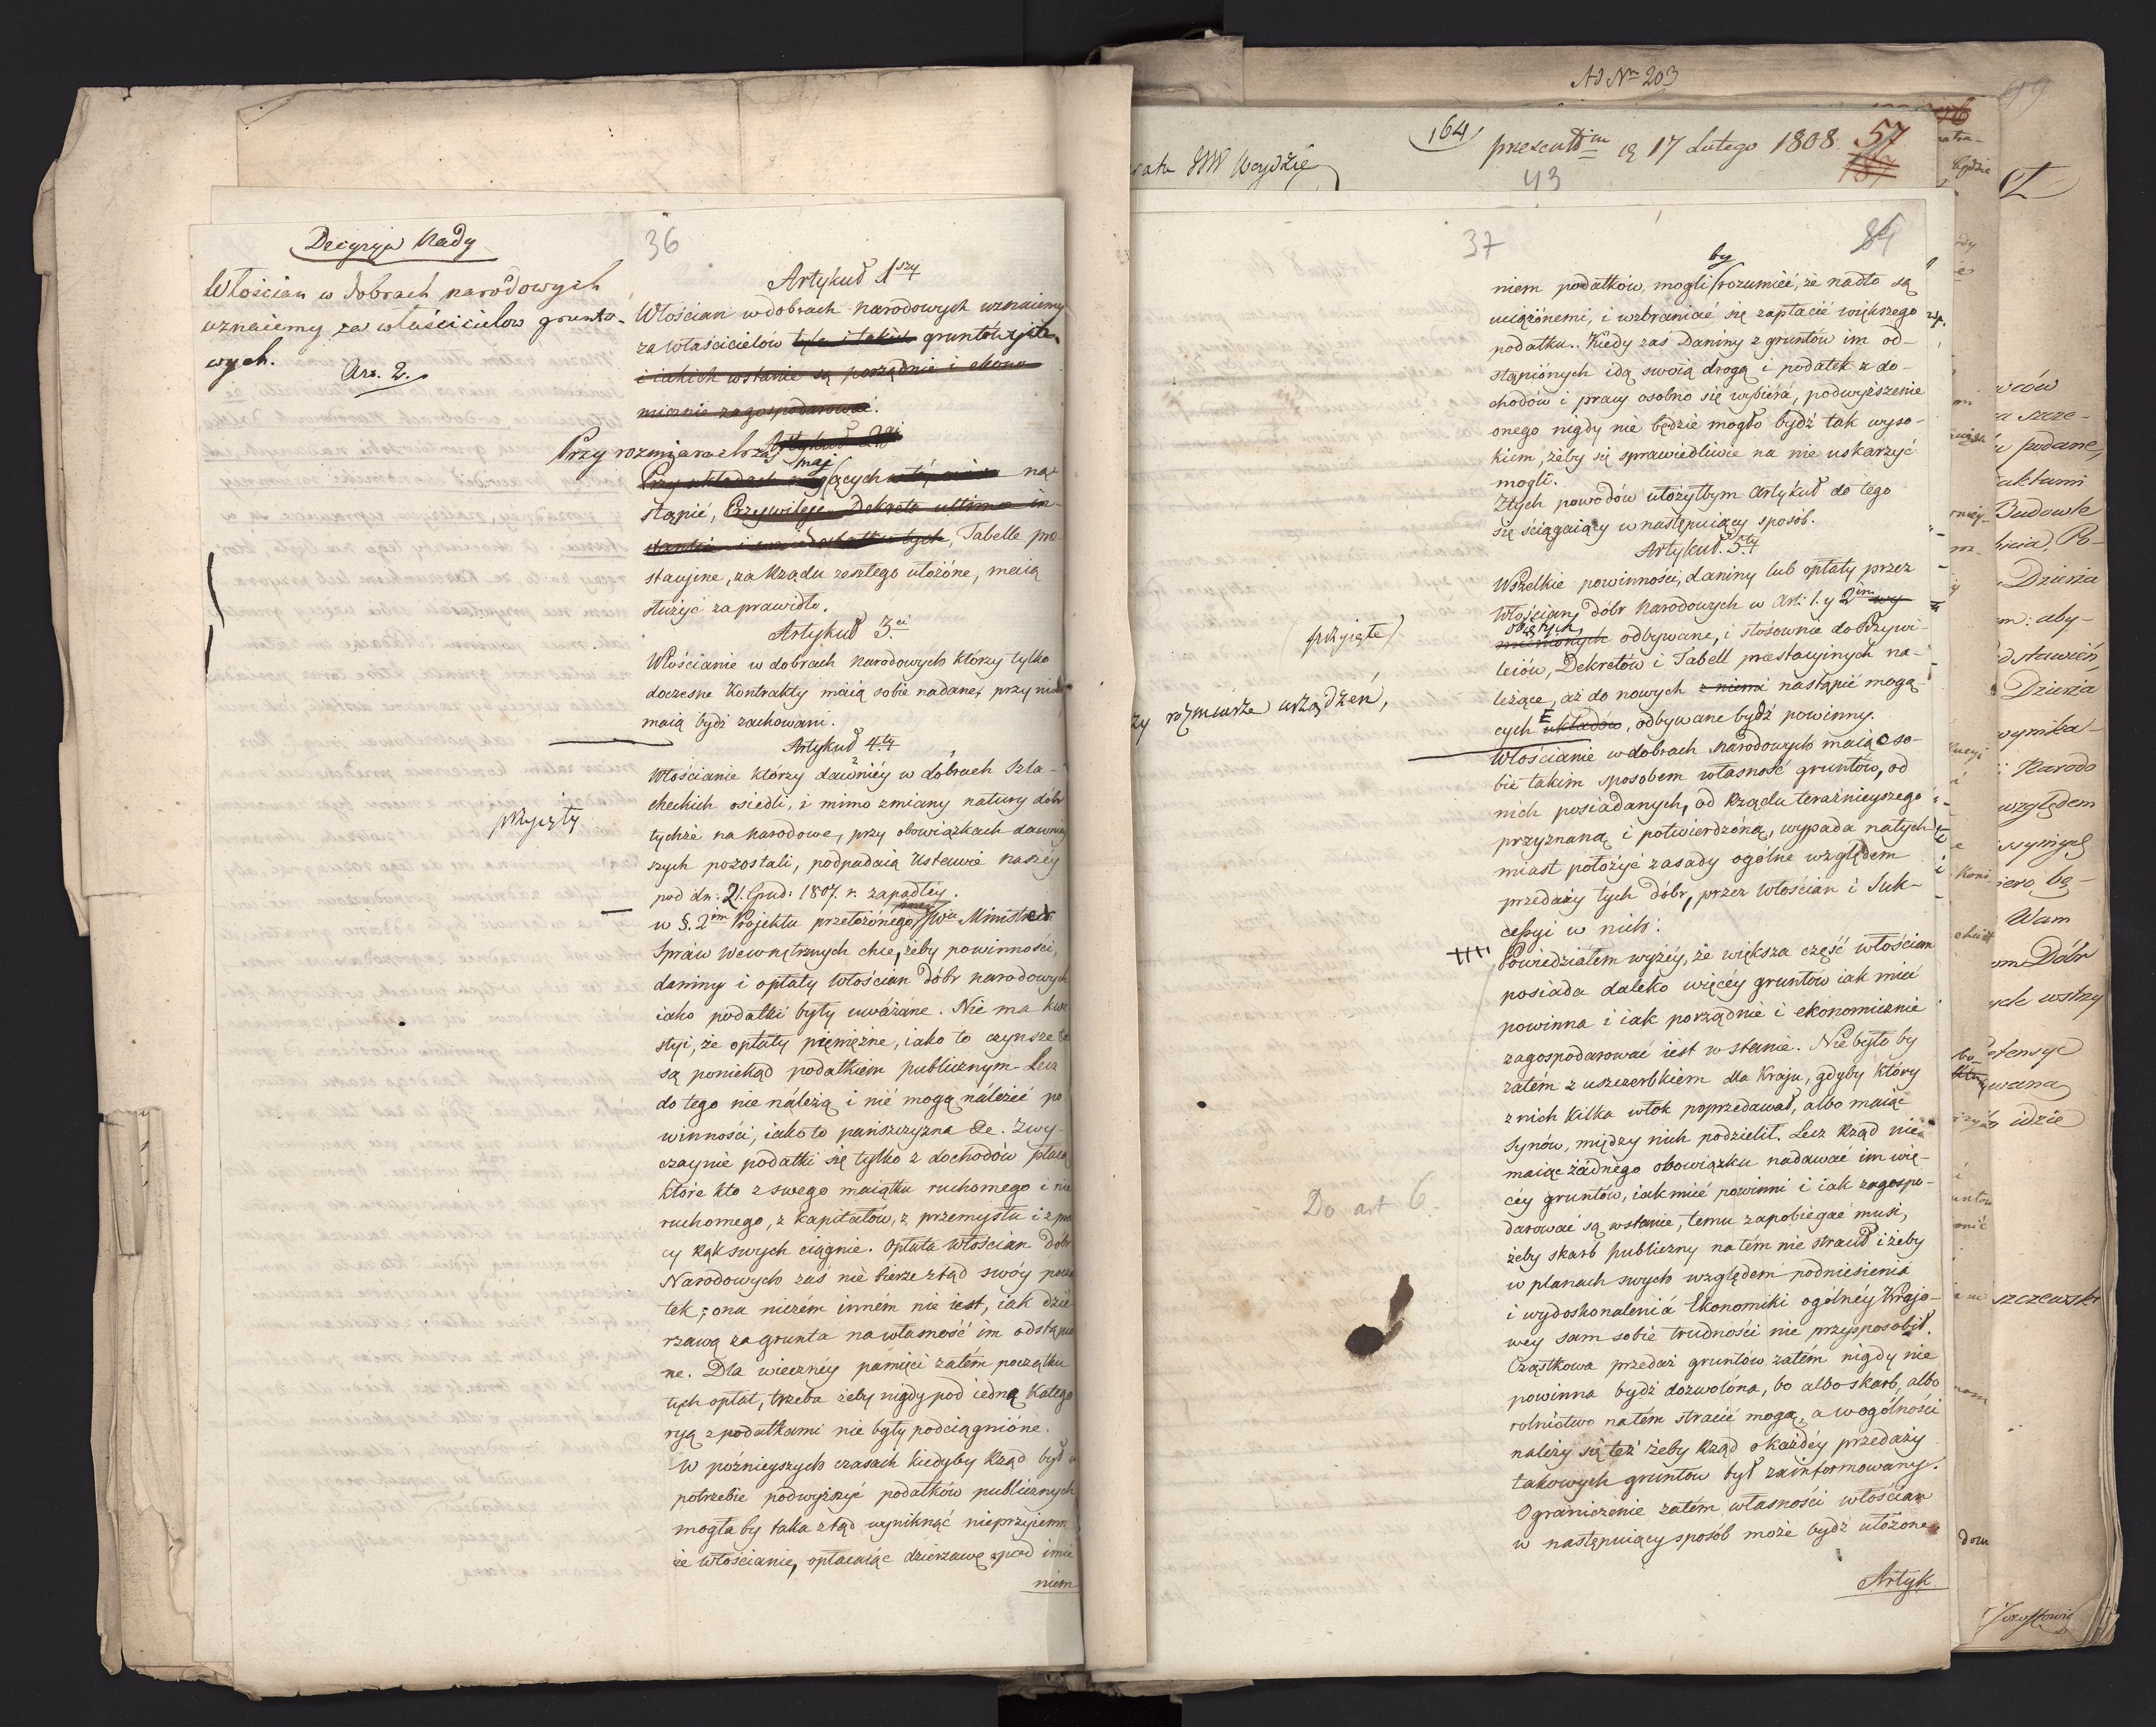 Decyzya Rady
Włościan w dobrach narodowych
uznaiemy za właścicielow grunto-
wych.
Art. 2.
przyięty
36
Artykuł 1szy
Włościan w dobrach Narodowych uznaiemy
za właścicielów tyle i takich gruntów, ile
i iakich w stanie są porządnie i ekono
micznie zagospodarować.
Artykuł 2gi
Przy rozmiarach rząd
Przy układach mającychch nastąpić na
stąpić, Przywileje, Dekreta ultimae in-
stantiae i w niedostatku tych, Tabelle pre
stacyine, za Rządu zeszłego ułożone, maią
służyć za prawidło.
Artykuł 3ci
Włościanie w dobrach Narodowych którzy tylko
doczesne Kontrakty maią sobie nadane, przy nich
maią bydź zachowani.
Artykuł 4ty
Włościanie którzy dawniéy w dobrach Szla-
checkich osiedli, i mimo zmiany natury dóbr
tychże na Narodowe, przy obowiązkach dawniey
szych pozostali, podpadaią Ustawie naszéy
pod dn: 21. Grud: 1807. r. zapadłéy.
w §. 2im Projektu przełożonego przez JWu Ministra
Spraw Wewnętrznych chce, żeby powinności,
daniny i opłaty Włościan Dóbr narodowych
iako podatki były uważane. Nie ma kwe
styi, że opłaty pieniężne, iako to czynsze
są poniekąd podatkiem publicznym. Lecz
do tego nie należą i nié mogą należéć po
winności, iako to pańszczyzna &c. Zwy
czaynie podatki się tylko z dochodów płacą
które kto z swego maiątku ruchomego i nie
ruchomego, z kapitałów, z przemysłu i z pra
cy rąk swych ciągnie. Opłata Włościan Dóbr
Narodowych zaś nie bierze ztąd swóy począ
tek; ona niczém inném nie iest, iak dzie
rzawą za grunta na własność im odstąpio
ne. Dla wiecznéy pamięci zatém początku
tych opłat, trzeba żeby nigdy pod iedną Katego
ryą z podatkami nie były podciągnióne.
W poźnieyszych czasach kiedyby Rząd był w
potrzebie podwyższyć podatków publicznych
mogłaby taka ztąd wyniknąć nieprzyiemn
że Włościanie, opłacaiąc dzierzawę pod imie
niem
Ad Nr 203
164
prezentm ią 17 Lutego 1808
57
43
37
84
by
niem podatków, mogli rozumiéć, że nadto są
uciążónemi, i wzbraniać się zapłacić większego
podatku. Kiedy zaś Daniny z gruntów im od-
stąpiónych idą swoią drogą i podatek z do-
chodów i pracy osobno się wybiéra, podwyższenie
onego nigdy nie będzie mogło bydź tak wyso-
kiem, żeby się sprawiedliwie na nie uskarzyć
mogli.
Ztych powodów ułożyłbym Artykuł do tego
się ściągaiący w następuiący sposób.
Artykuł. 5ty
Wszelkie powinności, daniny lub opłaty przez
Włościany dóbr Narodowych w Art: 1. y 2im wy
obiętych
mienionych odbywane, i stósownie do Przywi-
leiów, Dekretów i Tabell prestacyinych na-
leżące, aż do nowych z niemi nastąpić mogą-
cych układów, odbywane bydź powinny.
(przyięte)
rozmiarze urządzeń,
Włościanie w dobrach Narodowych maiąc so-
bie takim sposobem własność gruntów, od
nich posiadanych, od Rządu teraźnieyszego
przyznaną i potwierdzóną, wypada natych
miast położyć zasady ogólne względem
przedaży tych dóbr, przez Włościan i Suk-
cessyi w nich:
Powiedziałem wyżéy, że większa część włościan
posiada daleko więcéy gruntów iak miéć
powinna i iak porządnie i ekonomicznie
zagospodarować iest w stanie. Nie było by
zatém z uszczerbkiem dla Kraju, gdyby który
z nich kilka włók poprzedawał, albo maiąc
synów, między nich podzielił. Lecz Rząd nie
maiąc żádnego obowiązku nadawać im wię-
céy gruntów, iak miéć powinni i iak zagospo-
darować są w stanie, temu zapobiegać musi,
żeby skarb publiczny na tém nie stracił i żeby
w planach swych względem podniesienia
i wydoskonalenia Ekonomiki ogólnéy Krajo-
wéy sam sobie trudności nie przysposobił.
Cząstkowa przedaż gruntów zatém nigdy nie
powinna bydź dozwolóna, bo albo skarb, albo
rolnictwo na tém stracić mogą, a w ogólności
należy się też żeby Rząd o każdéy przedaży
takowych gruntow był zainformowany.
Ograniczenie zatém własności włościan
w następuiący sposób może bydź ułożone
Artyk
Do art 6.